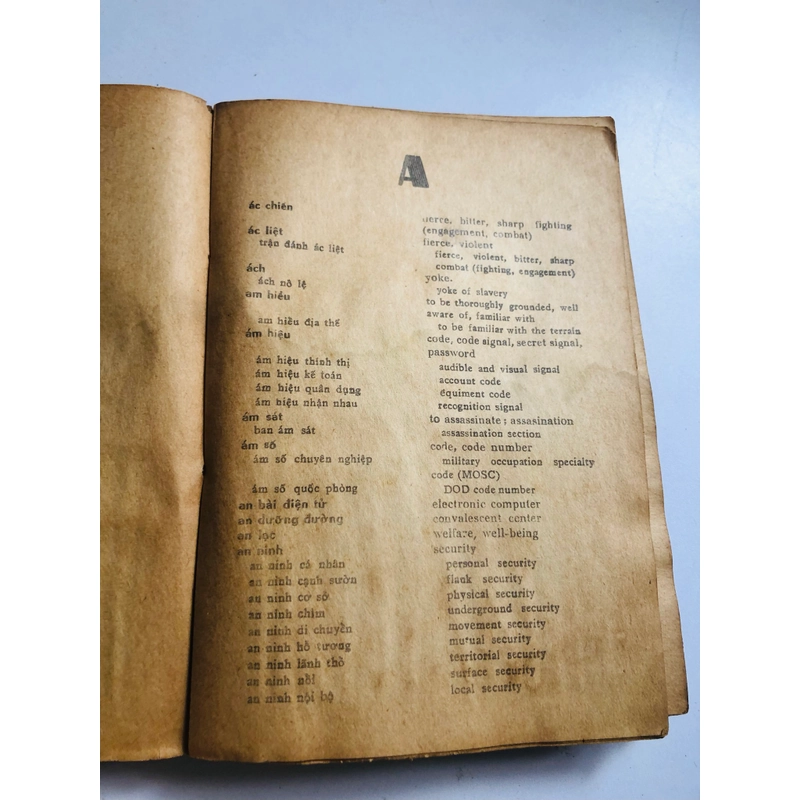 A
ác chiến
fierce, bitter, sharp fighting
(engagement, combat)
ác liệt
fierce, violent
trận đánh ác liệt
fierce, violent, bitter, sharp
combat (fighting, engagement)
ách
yoke.
ách nô lệ
yoke of slavery
am hiểu
to be thoroughly grounded, well
aware of, familiar with
am hiểu địa thế
to be familiar with the terrain
ám hiệu
code, code signal, secret signal,
password
ám hiệu thính thị
audible and visual signal
ám hiệu kế toán
account code
ám hiệu quân dụng
équiment code
ám hiệu nhận nhau
recognition signal
ám sát
to assassinate; assasination
ban ám sát
assassination section
ám số
code, code number
ám số chuyên nghiệp
military occupation specialty
code (MOSC)
ám số quốc phòng
DOD code number
an bài điện tử
electronic computer
an dưỡng đường
convalescent center
an lạc
welfare, well-being
an ninh
security
an ninh cá nhân
personal security
an ninh cạnh sườn
flank security
an ninh cơ sở
physical security
an ninh chìm
underground security
an ninh di chuyển
movement security
an ninh hỗ tương
mutual security
an ninh lãnh thổ
territorial security
an ninh nổi
surface security
an ninh nội bộ
local security